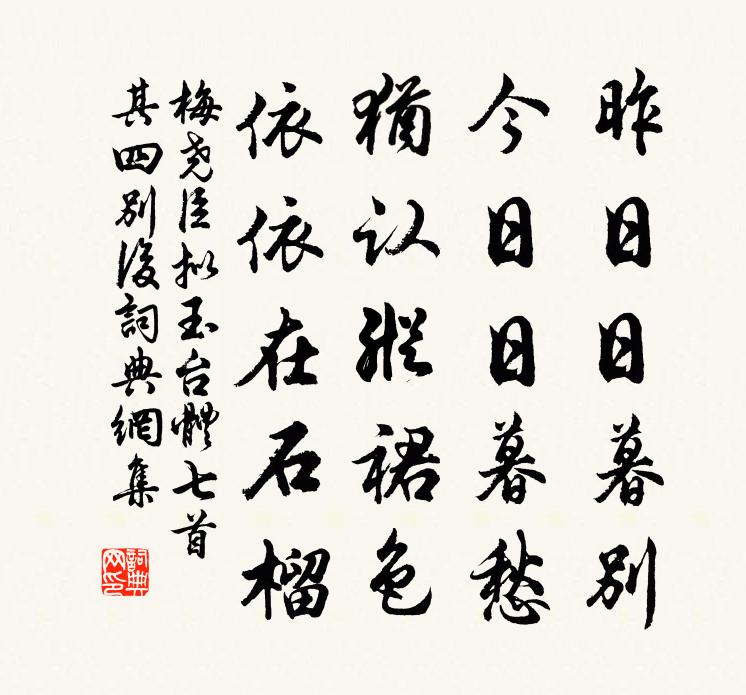 昨日日暮别
今日日暮愁
猶认殷裙色
依依在石榴
梅尧臣拟玉台體七首
其四别後詞典網集
詞典
网印